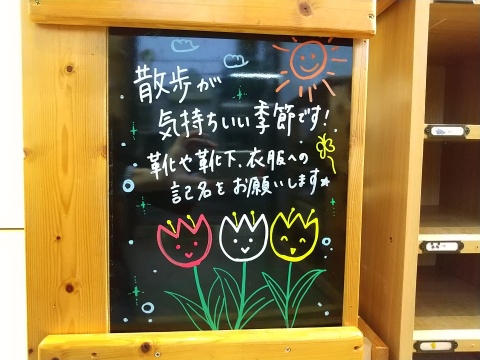 散歩が
気持ちいい季節です!
靴や靴下、衣服への
記名をお願いします★